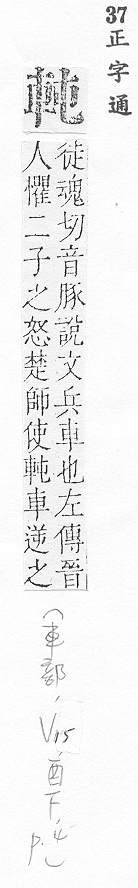 37 正字通
軘
徒魂切音豚說文兵車也左傳晉
人懼二子之怒楚師使軘車逆之
(車部, V15, 酉下, 4, p.)